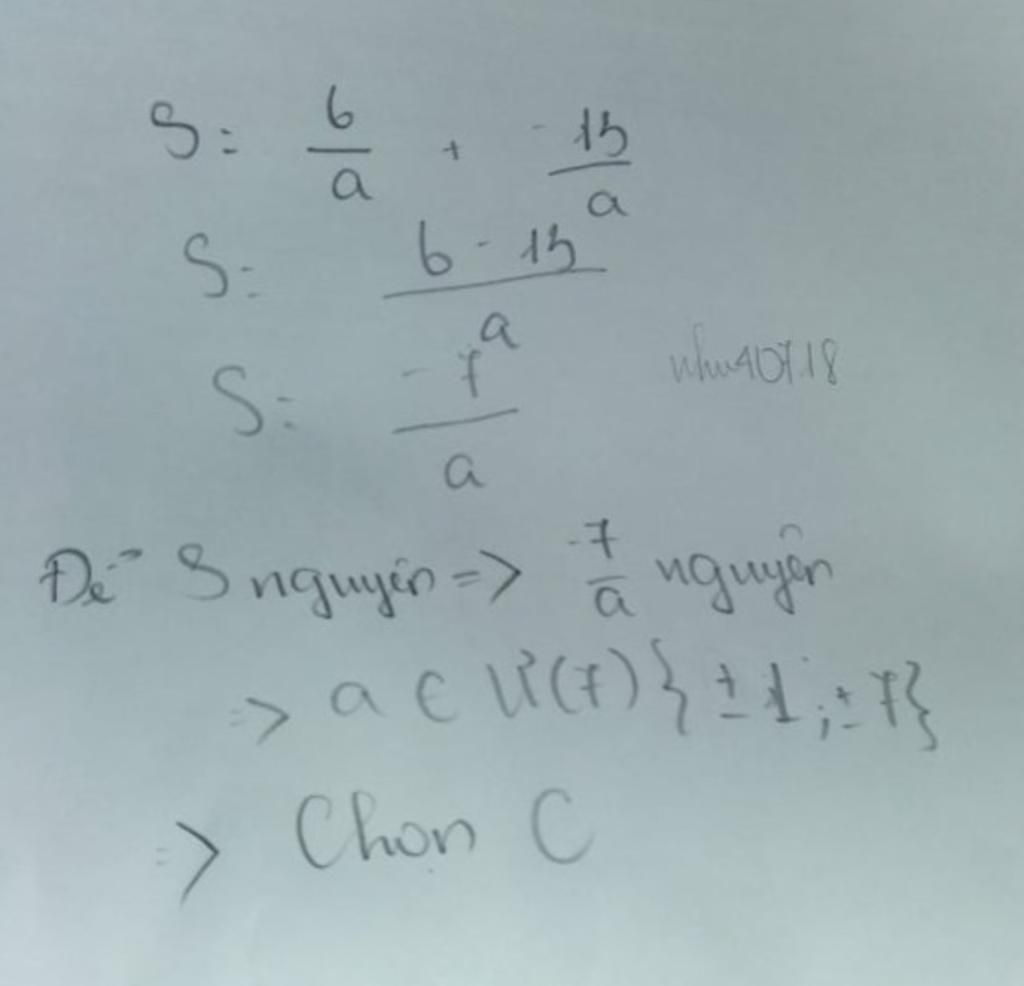 S = 6/a + -13/a
S = 6 - 13/a
S = -7/a
nhu40718
Để S nguyên => -7/a nguyên
=> a ∈ Ư(7) { ±1; ±7}
=> Chọn C